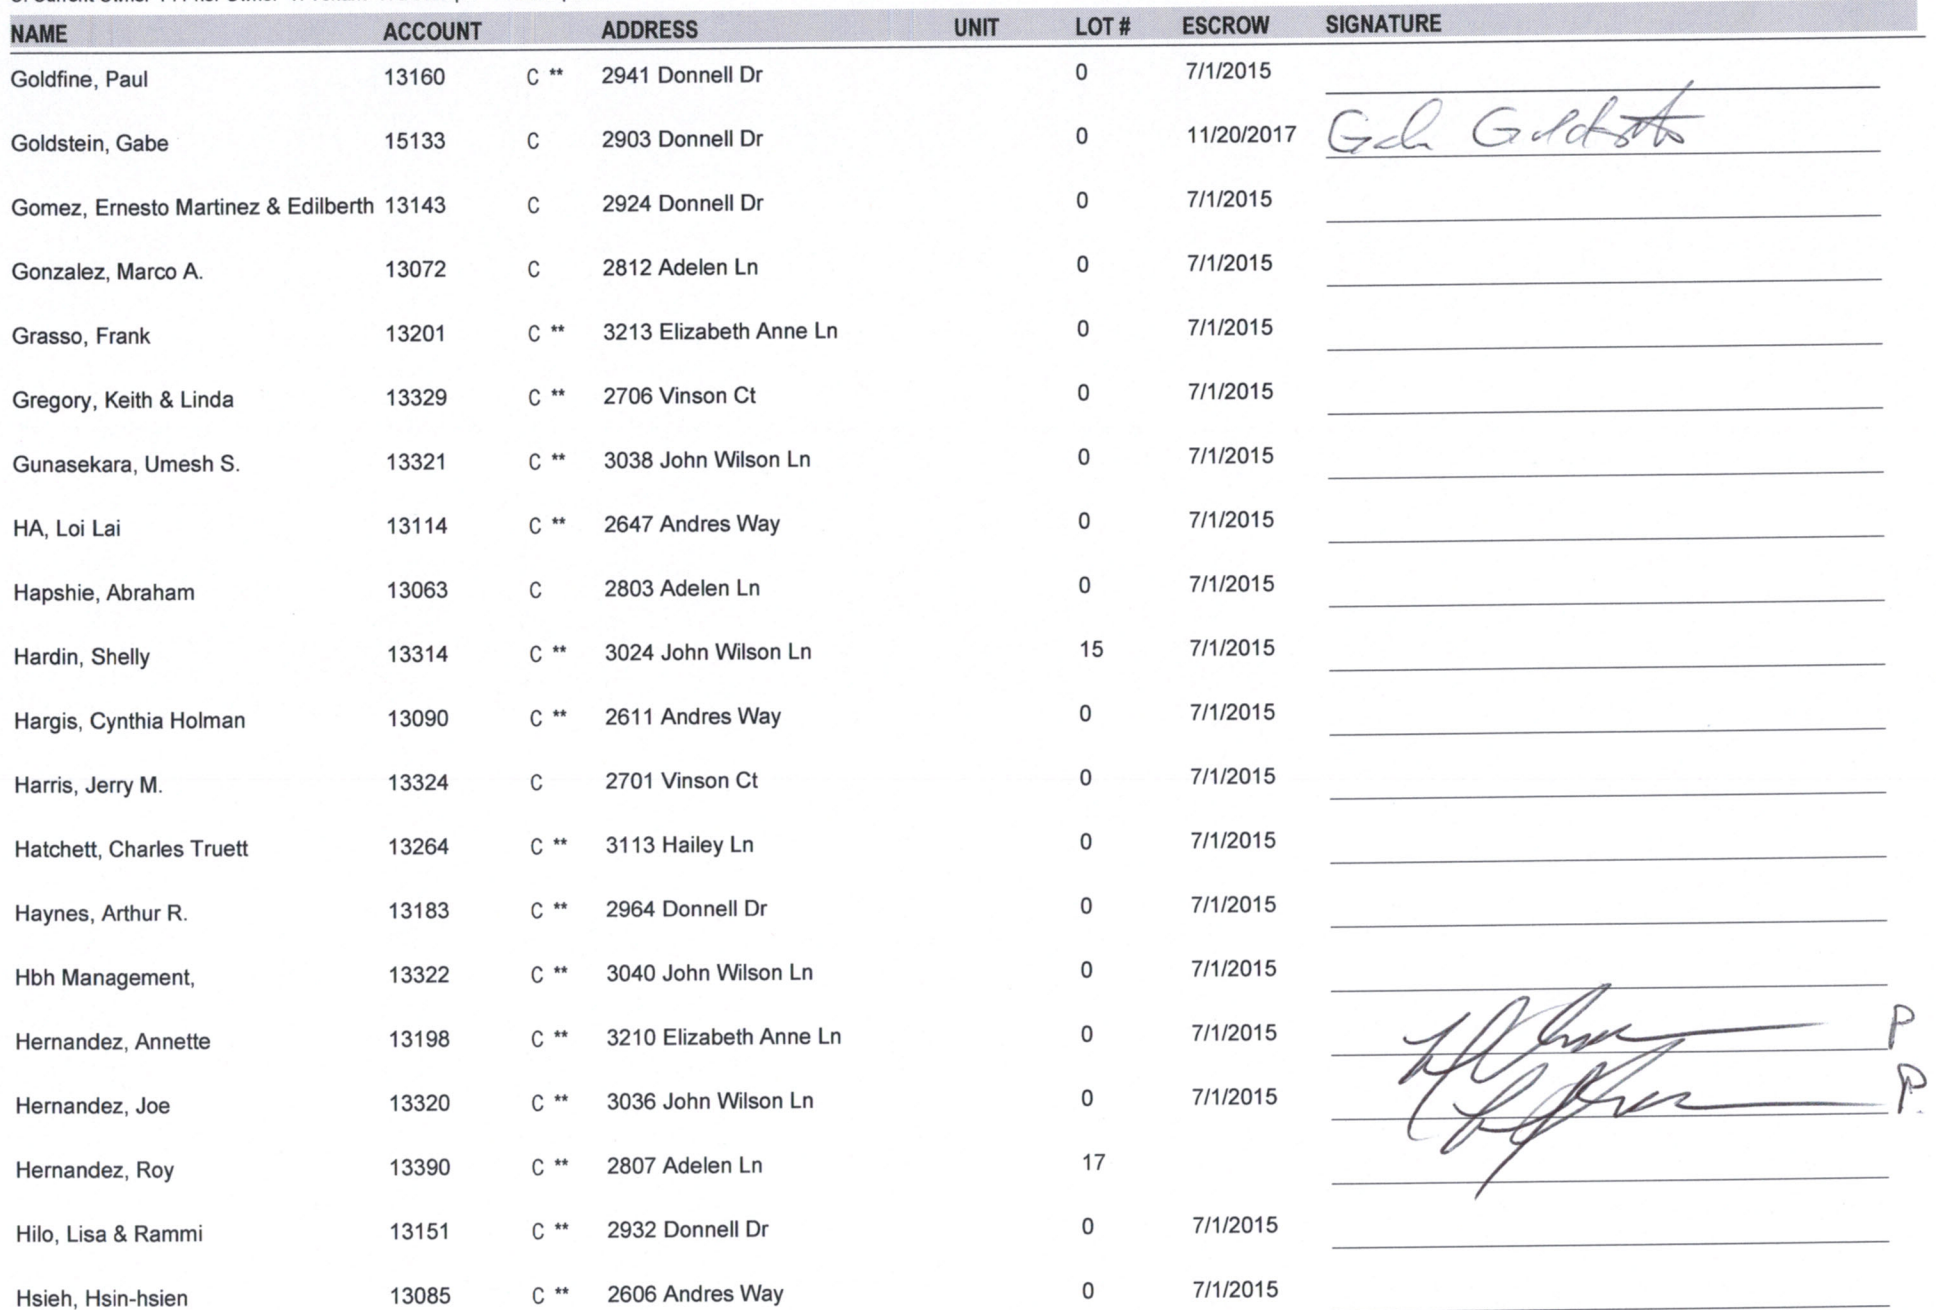 NAME ACCOUNT ADDRESS UNIT LOT # ESCROW SIGNATURE
Goldfine, Paul 13160 C ** 2941 Donnell Dr 0 7/1/2015
Goldstein, Gabe 15133 C 2903 Donnell Dr 0 11/20/2017
Gomez, Ernesto Martinez & Edilberth 13143 C 2924 Donnell Dr 0 7/1/2015
Gonzalez, Marco A. 13072 C 2812 Adelen Ln 0 7/1/2015
Grasso, Frank 13201 C ** 3213 Elizabeth Anne Ln 0 7/1/2015
Gregory, Keith & Linda 13329 C ** 2706 Vinson Ct 0 7/1/2015
Gunasekara, Umesh S. 13321 C ** 3038 John Wilson Ln 0 7/1/2015
HA, Loi Lai 13114 C ** 2647 Andres Way 0 7/1/2015
Hapshie, Abraham 13063 C 2803 Adelen Ln 0 7/1/2015
Hardin, Shelly 13314 C ** 3024 John Wilson Ln 15 7/1/2015
Hargis, Cynthia Holman 13090 C ** 2611 Andres Way 0 7/1/2015
Harris, Jerry M. 13324 C 2701 Vinson Ct 0 7/1/2015
Hatchett, Charles Truett 13264 C ** 3113 Hailey Ln 0 7/1/2015
Haynes, Arthur R. 13183 C ** 2964 Donnell Dr 0 7/1/2015
Hbh Management, 13322 C ** 3040 John Wilson Ln 0 7/1/2015
Hernandez, Annette 13198 C ** 3210 Elizabeth Anne Ln 0 7/1/2015 P
Hernandez, Joe 13320 C ** 3036 John Wilson Ln 0 7/1/2015 P.
Hernandez, Roy 13390 C ** 2807 Adelen Ln 17
Hilo, Lisa & Rammi 13151 C ** 2932 Donnell Dr 0 7/1/2015
Hsieh, Hsin-hsien 13085 C ** 2606 Andres Way 0 7/1/2015